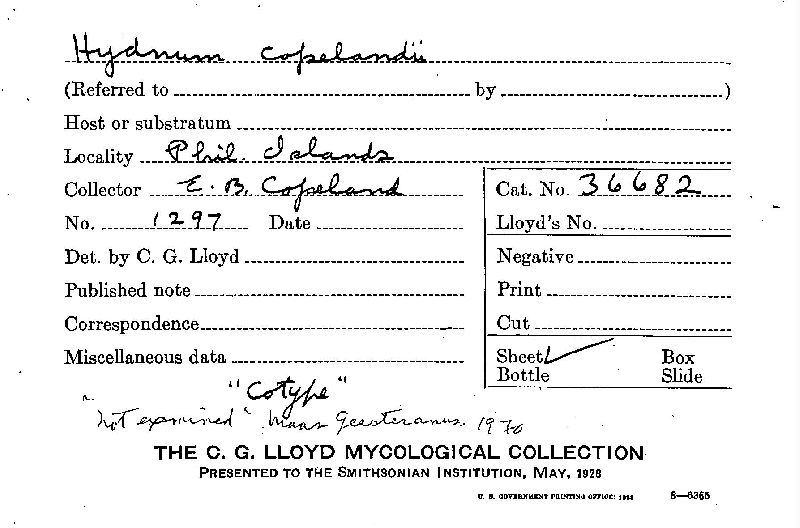 Hydnum Copelandii
(Referred to by )
Host or substratum
Locality Phil. Islands
Collector E. B. Copeland
Cat. No. 36682
No. 1297 Date
Lloyd's No.
Det. by C. G. Lloyd
Negative
Published note
Print
Correspondence
Cut
Miscellaneous data
Sheet ✓ Box
Bottle Slide
"Cotype"
"not examined" Maas Geesteranus 1970
THE C. G. LLOYD MYCOLOGICAL COLLECTION
PRESENTED TO THE SMITHSONIAN INSTITUTION, MAY, 1928
U. S. GOVERNMENT PRINTING OFFICE: 8—6365